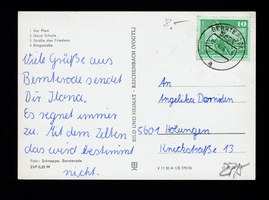 1 Vor Plan
2 Neue Schule
3 Straße des Friedens
4 Ringstraße
Viele Grüße aus
Bernterode sendet
Dir Ilona.
Es regnet immer
zu. Mit dem Zelten
das wird bestimmt
nicht.
Foto: Schneppe, Bernterode
BILD UND HEIMAT · REICHENBACH (VOGTL)
10
An
Angelika
5601 Holungen
Knickstraße 13